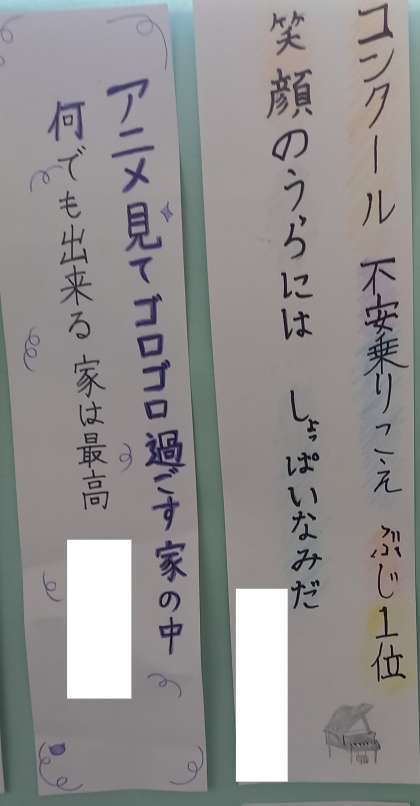 コンクール 不安乗りこえ ぶじ1位
笑顔のうらには しょっぱいなみだ
アニメ見てゴロゴロ過ごす家の中
何でも出来る家は最高